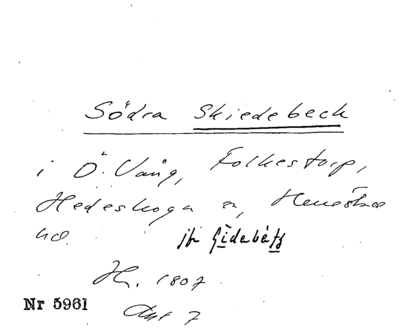 Södra Skiedebeck
i Ö. Vång, Folkestorp,
Hedeskoga sn, Herrestads
hd. jfr Gidebäck
Hr. 1807
Nr 5961 Akt 7